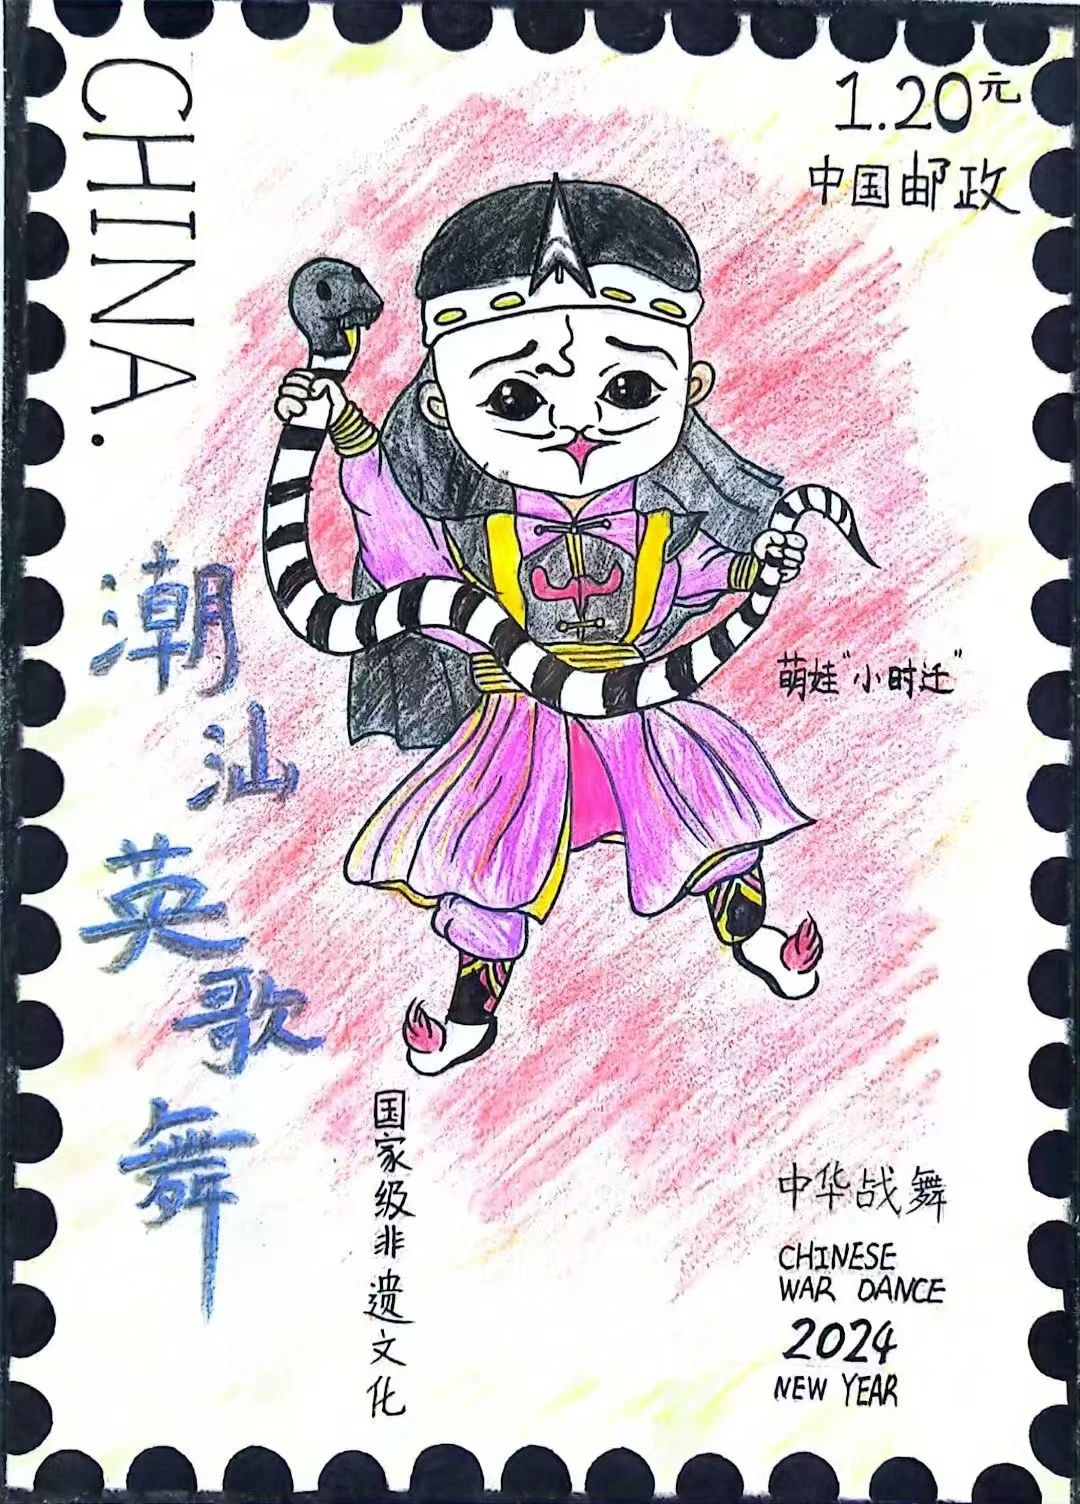 CHINA.
1.20元
中国邮政
潮汕英歌舞
萌娃"小时迁"
国家级非遗文化
中华战舞
CHINESE
WAR DANCE
2024
NEW YEAR